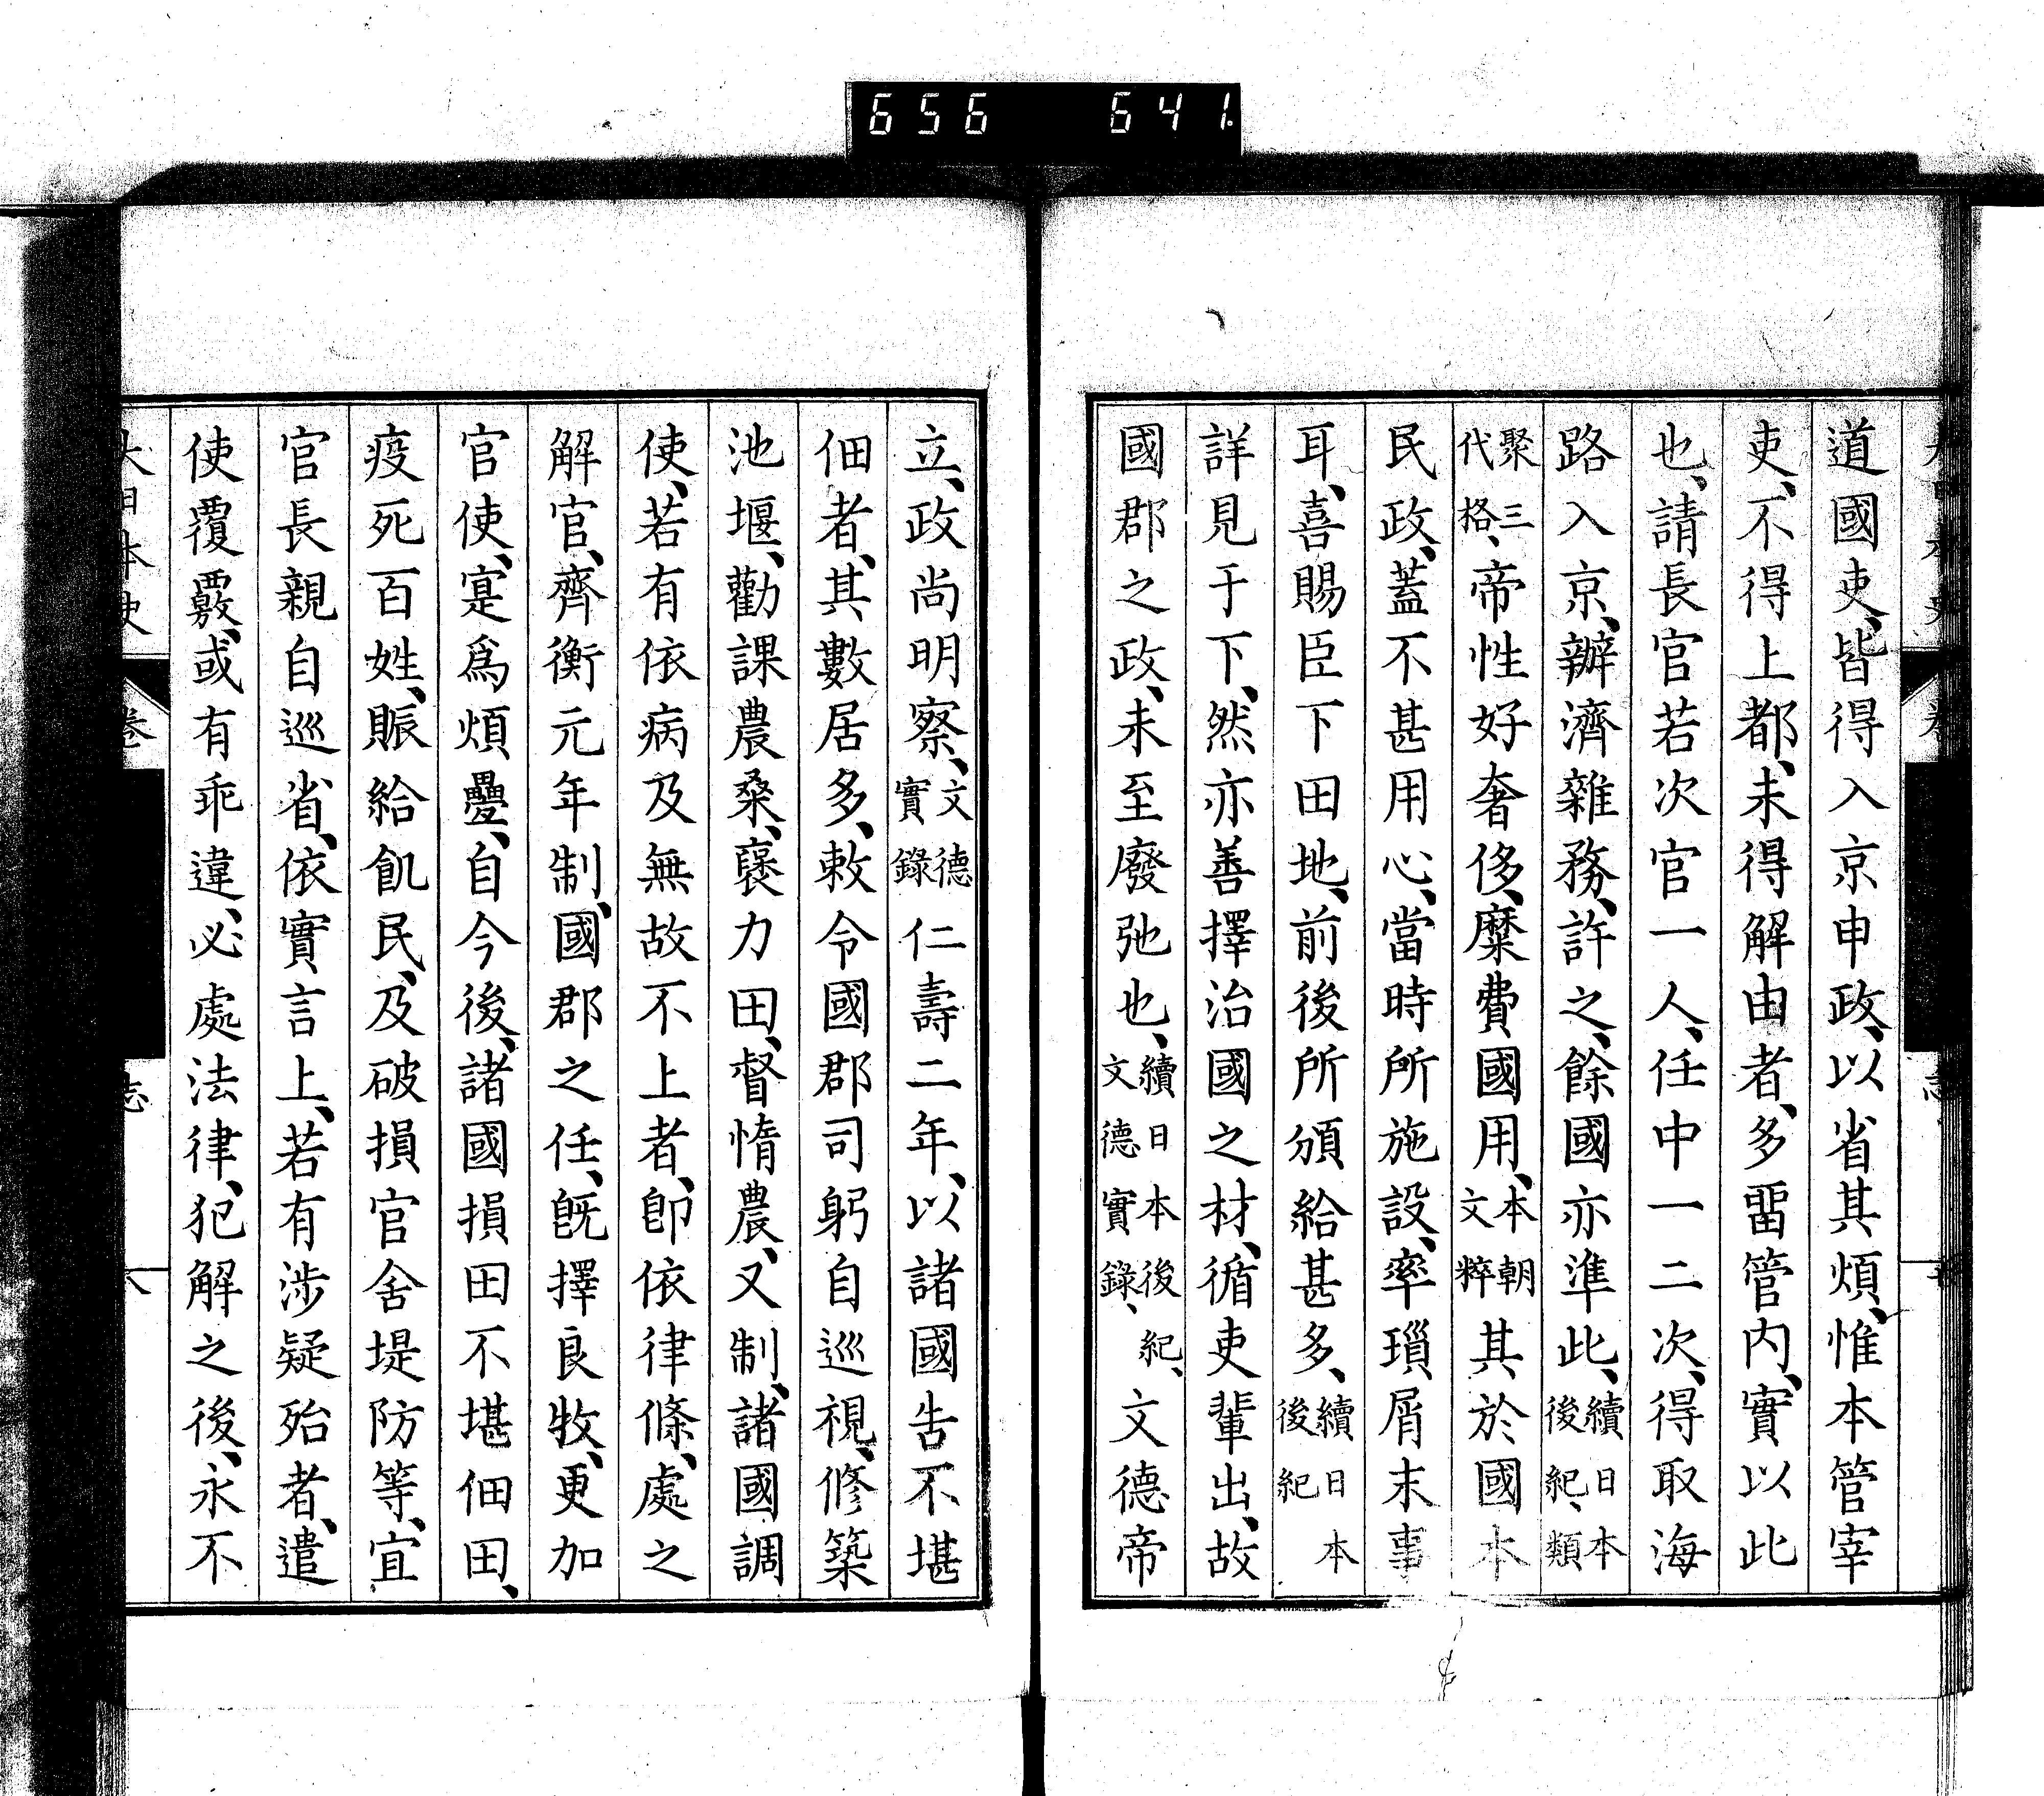 656 641
道國吏、皆得入京申政、以省其煩、惟本管宰
吏、不得上都、未得解由者、多畱管内、實以此
也、請長官若次官一人、任中一二次、得取海
路入京、辦濟雜務、許之、餘國亦準此、續日本後紀、類
聚三代格、帝性好奢侈、糜費國用、本朝文粹其於國本
民政、蓋不甚用心、當時所施設、率瑣屑末事
耳、喜賜臣下田地、前後所頒給甚多、續日本後紀
詳見于下、然亦善擇治國之材、循吏輩出、故
國郡之政、未至廢弛也、續日本後紀、文德實錄、文德帝
立、政尚明察、文德實錄仁壽二年、以諸國告不堪
佃者、其數居多、敕令國郡司躬自巡視、修築
池堰、勸課農桑、襃力田、督惰農、又制、諸國調
使、若有依病及無故不上者、卽依律條、處之
解官、齊衡元年制、國郡之任、旣擇良牧、更加
官使、寔爲煩疊、自今後、諸國損田不堪佃田、
疫死百姓、賑給飢民、及破損官舍堤防等、宜
官長親自巡省、依實言上、若有涉疑殆者、遣
使覆覈、或有乖違、必處法律、犯解之後、永不
大日本史 卷 志 八